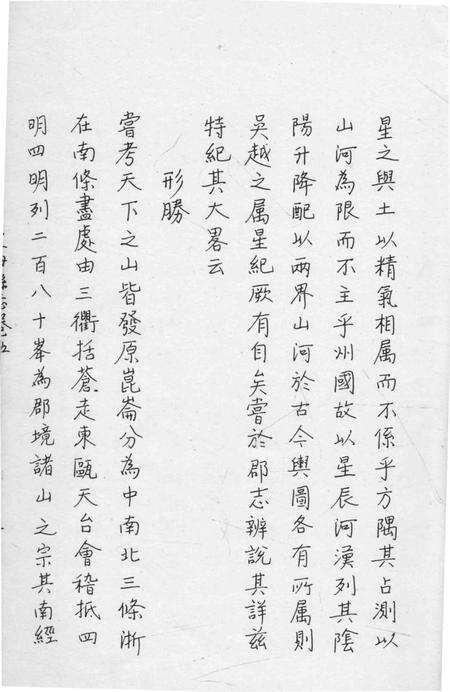 星之與土以精氣相属而不係乎方隅其占測以
山河為限而不主乎州國故以星辰河漢列其陰
陽升降配以兩界山河於古今輿圖各有所属則
吳越之属星紀厥有自矣嘗於郡志辨說其詳茲
特紀其大畧云
形勝
嘗考天下之山皆發原崑崙分為中南北三條浙
在南條盡處由三衢括蒼走東甌天台會稽抵四
明四明列二百八十峯為郡境諸山之宗其南經